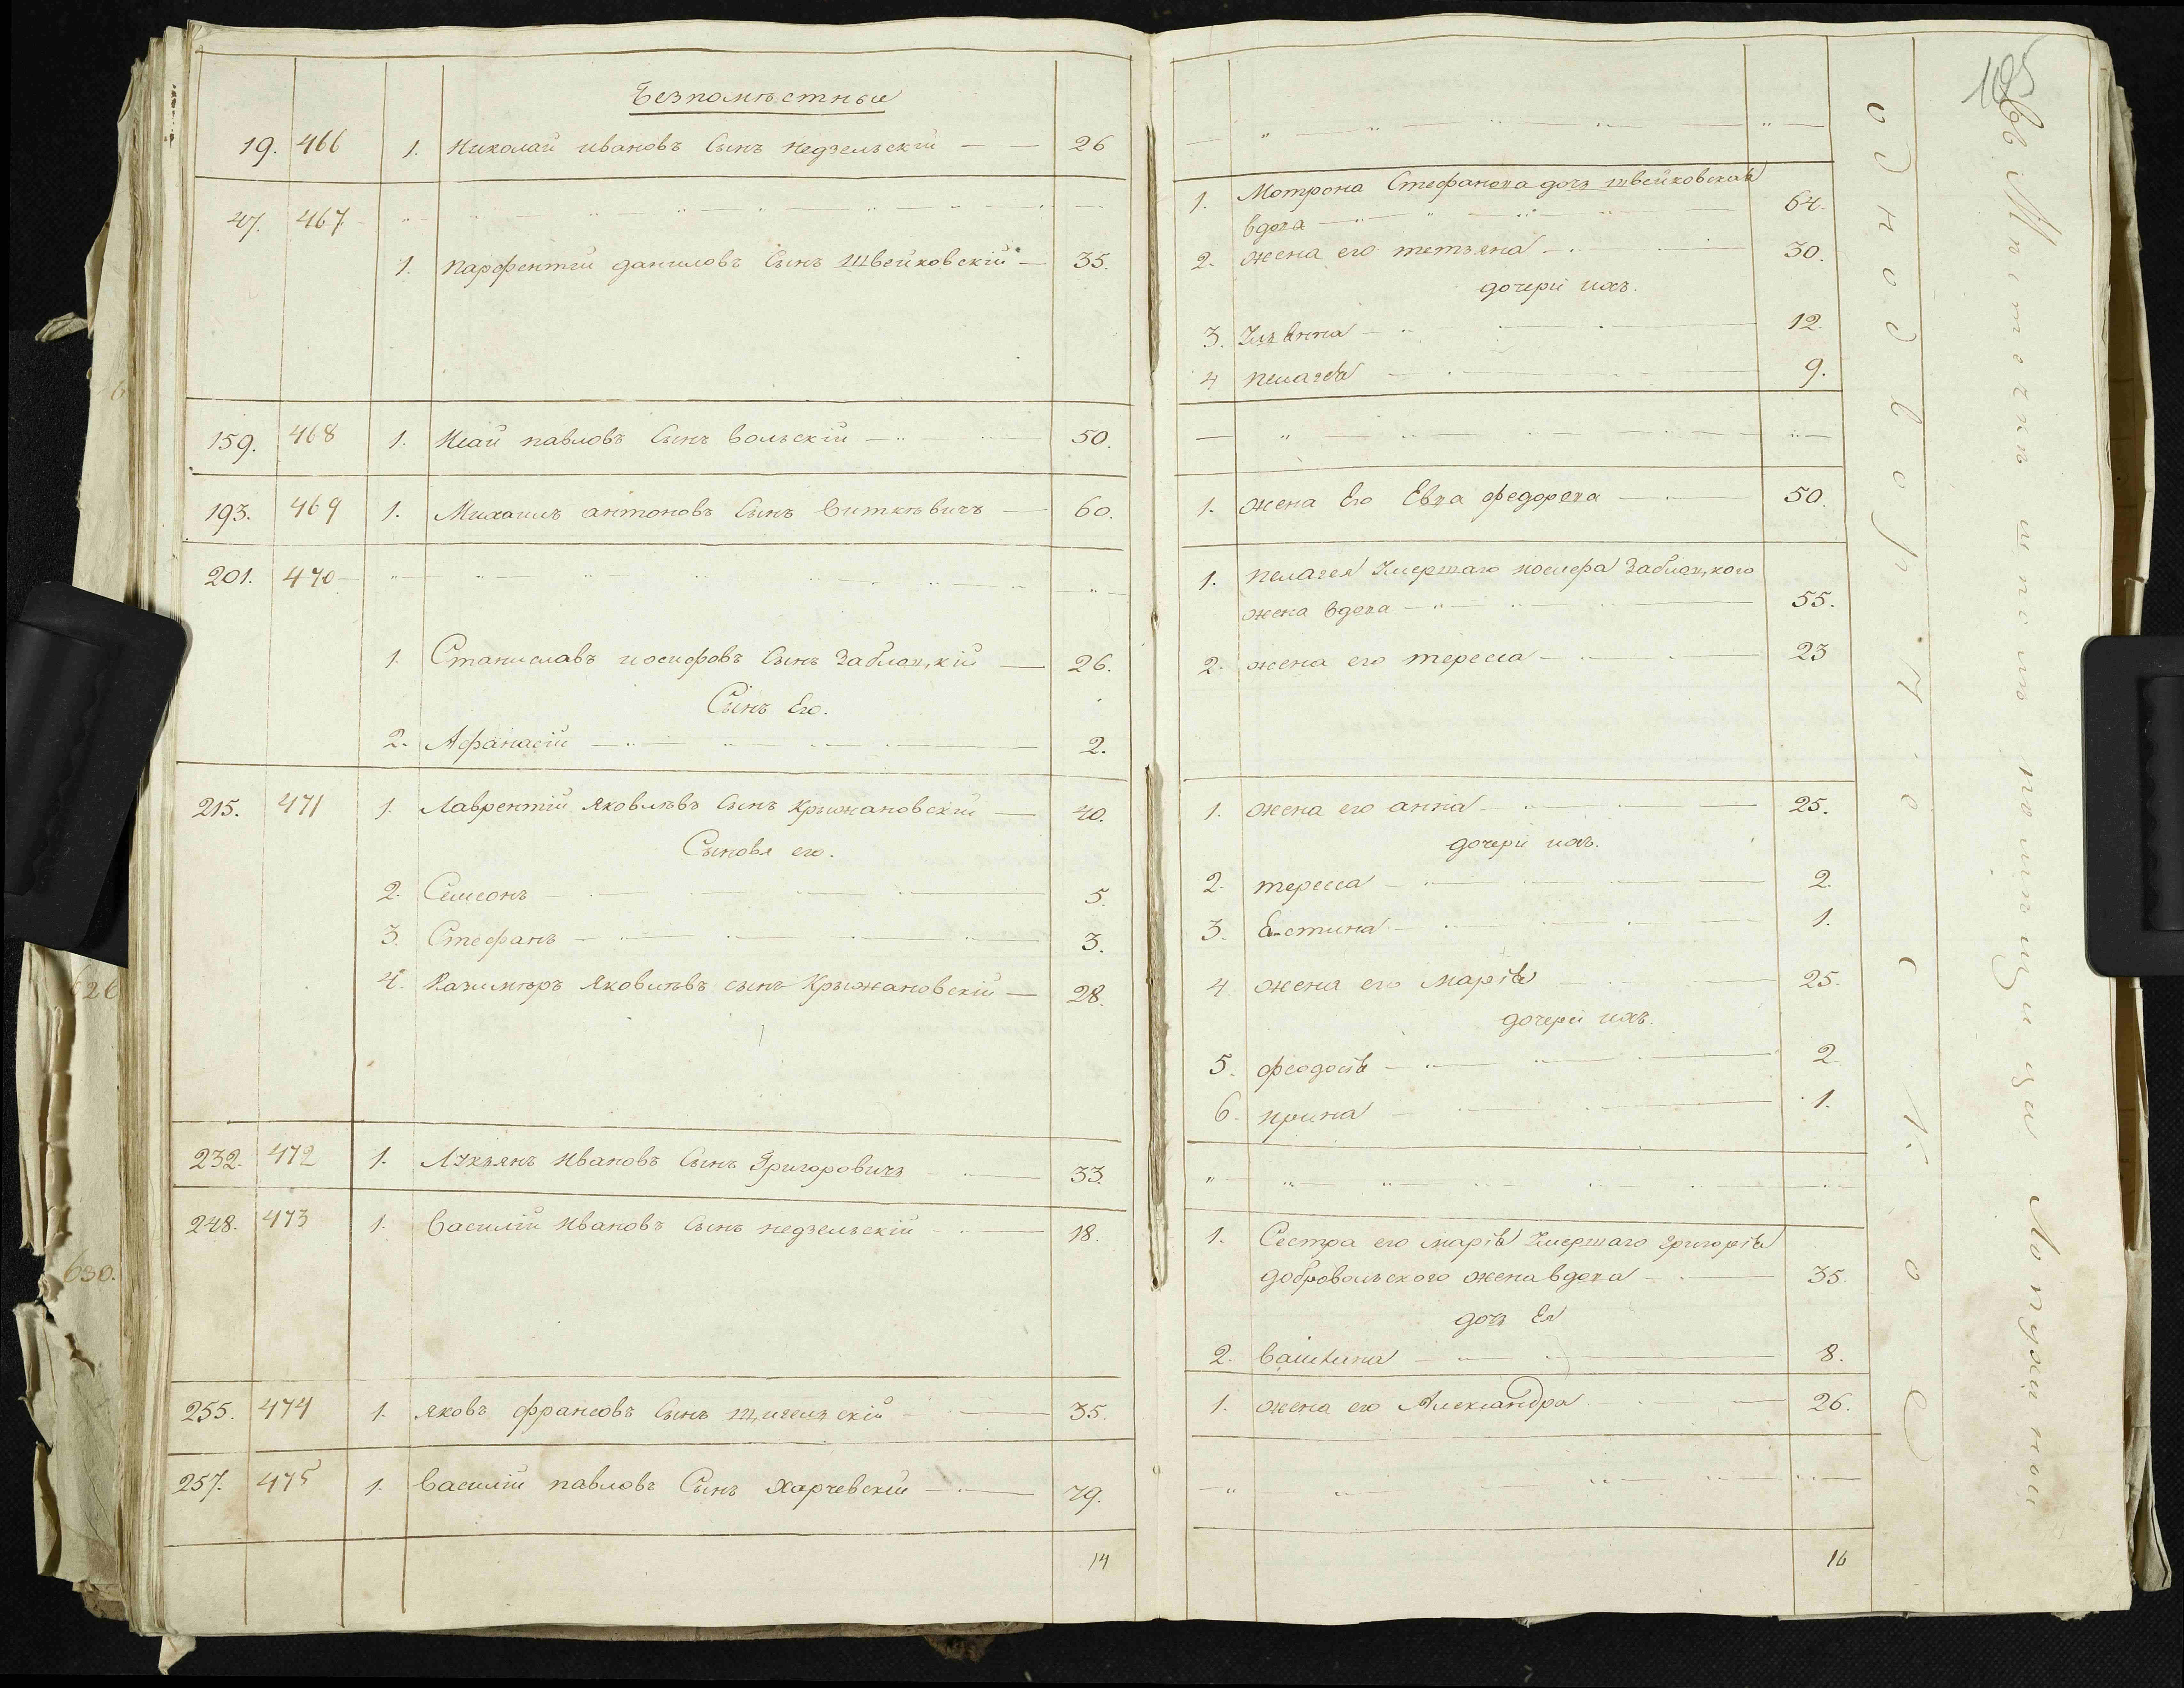 Безпомѣстные
19. 466 1. Николай ивановъ Сынъ недзельскій 26
47. 467
1. Парфентій даниловъ Сынъ Швейковскій 35.
159. 468 1. Исай павловъ Сынъ вольскій 50.
193. 469 1. Михаилъ антоновъ Сынъ виткѣвичъ 60.
201. 470
1. Станиславъ иосифовъ Сынъ Заблоцкій 26.
Сынъ Его.
2. Афанасій 2.
215. 471 1. Лаврентій Яковлѣвъ Сынъ Крыжановскій 40.
Сыновя его.
2. Симеонъ 5.
3. Стефанъ 3.
4. Казимѣръ Яковлѣвъ сынъ Крыжановскій 28.
232. 472 1. Лукъянъ Ивановъ Сынъ Григоровичъ 33.
248. 473 1. Василій Ивановъ Сынъ недзельскій 18.
255. 474 1. яковъ францовъ Сынъ 35.
257. 475 1. Василій павловъ Сынъ Харчевскій 79.
14
195
1. Мотрона Стефанова дочъ швейковская
вдова 64.
2. жена его тетъяна 30.
дочери ихъ.
3. 12.
4 пелагея 9.
1. жена Его Евва федорова 50.
1. пелагея Умершаго иосифа Заблоцкого
жена вдова 55.
2. жена его тересса 23
1. жена его анна 25.
дочери ихъ.
2. тересса 2.
3. 1.
4 жена его марія 25.
дочери ихъ.
5. феодосія 2.
6. ирина 1.
1. Сестра его марія Умершаго григорія
добровольского жена вдова 35.
дочъ Ея
2. 8.
1. жена его Александра 26.
16
Въ Мѣстечкѣ